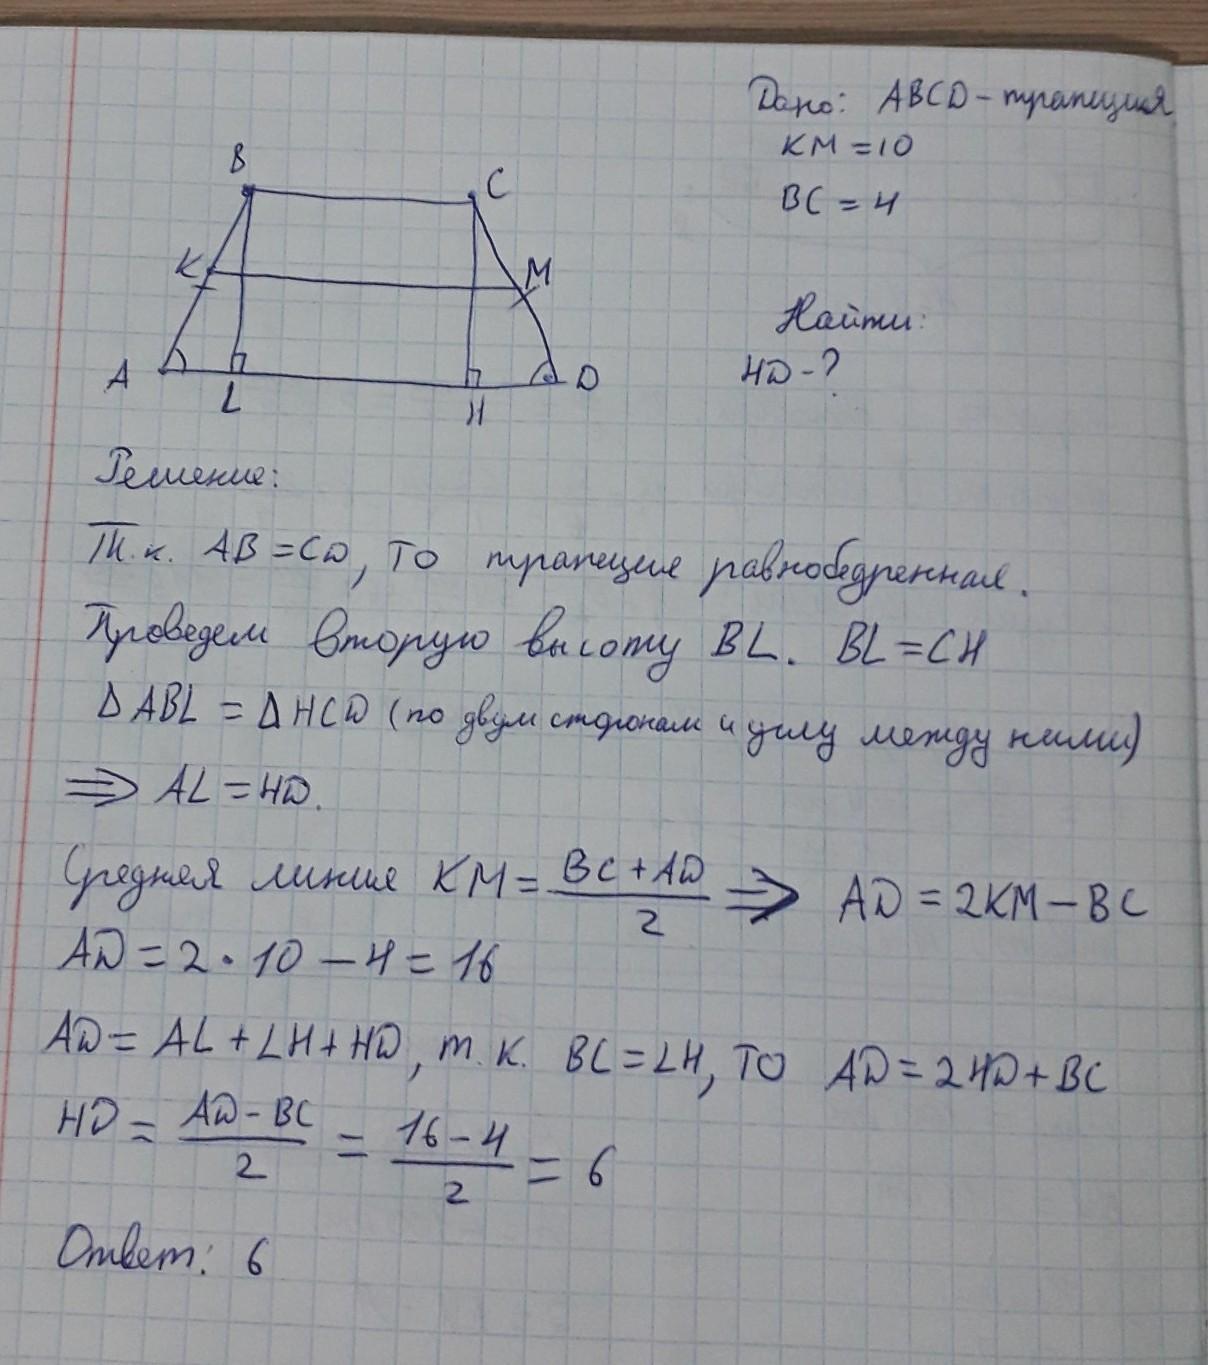 Дано: ABCD - трапеция
KM = 10
BC = 4
B
C
K
M
A
L
H
D
Найти:
HD - ?
Решение:
Т.к. AB = CD, то трапеция равнобедренная.
Проведем вторую высоту BL. BL = CH
Δ ABL = Δ HCD (по двум сторонам и углу между ними)
⇒ AL = HD.
Средняя линия KM = (BC + AD)/2 ⇒ AD = 2KM - BC
AD = 2 · 10 - 4 = 16
AD = AL + LH + HD, т.к. BC = LH, то AD = 2HD + BC
HD = (AD - BC)/2 = (16 - 4)/2 = 6
Ответ: 6